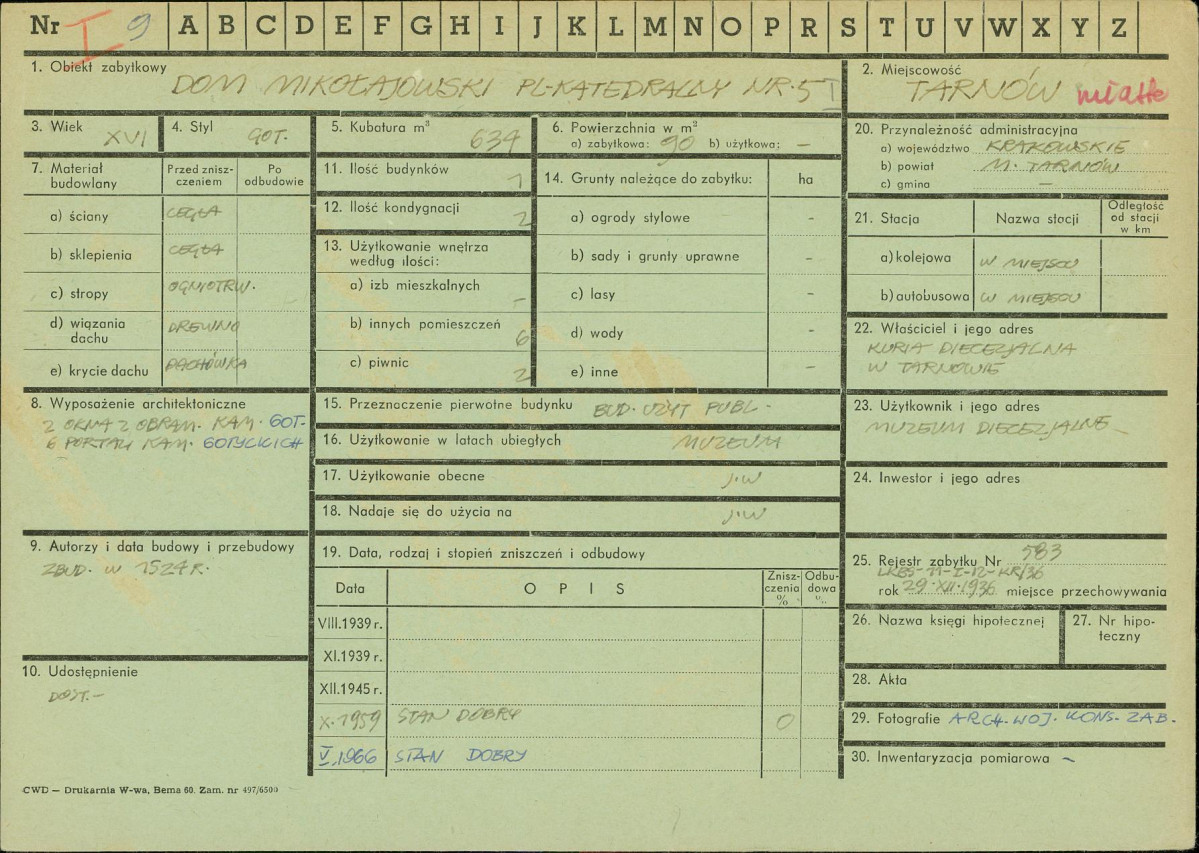 Nr I 9 A B C D E F G H I J K L M N O P R S T U V W X Y Z
1. Obiekt zabytkowy
DOM MIKOŁAJOWSKI PL-KATEDRALNY NR. 5
2. Miejscowość
TARNÓW
3. Wiek XVI
4. Styl GOT.
5. Kubatura m³ 634
6. Powierzchnia w m²
a) zabytkowa: 90 b) użytkowa: –
7. Materiał budowlany
Przed zniszczeniem
Po odbudowie
a) ściany CEGŁA
b) sklepienia CEGŁA
c) stropy OGNIOTRW.
d) wiązania dachu DREWNO
e) krycie dachu DACHÓWKA
8. Wyposażenie architektoniczne
2 OKNA Z OBRAM. KAM. GOT.
6 PORTALI KAM. GOTYCKICH
9. Autorzy i data budowy i przebudowy
ZBUD. W 1524 R.
10. Udostępnienie
DOST. –
11. Ilość budynków 1
12. Ilość kondygnacji 2
13. Użytkowanie wnętrza według ilości:
a) izb mieszkalnych –
b) innych pomieszczeń 6
c) piwnic 2
14. Grunty należące do zabytku: ha
a) ogrody stylowe –
b) sady i grunty uprawne –
c) lasy –
d) wody –
e) inne –
15. Przeznaczenie pierwotne budynku BUD. UŻYT PUBL.
16. Użytkowanie w latach ubiegłych MUZEUM
17. Użytkowanie obecne J.W
18. Nadaje się do użycia na J.W
19. Data, rodzaj i stopień zniszczeń i odbudowy
Data OPIS Zniszczenia % Odbudowa %
VIII.1939 r.
XI.1939 r.
XII.1945 r.
X. 1959 STAN DOBRY 0
V.1966 STAN DOBRY
20. Przynależność administracyjna
a) województwo KRAKOWSKIE
b) powiat M. TARNÓW
c) gmina –
21. Stacja Nazwa stacji Odległość od stacji w km
a) kolejowa W MIEJSCU
b) autobusowa W MIEJSCU
22. Właściciel i jego adres
KURIA DIECEZJALNA
W TARNOWIE
23. Użytkownik i jego adres
MUZEUM DIECEZJALNE
24. Inwestor i jego adres
25. Rejestr zabytku Nr 583
rok 29.XII.1936 miejsce przechowywania
26. Nazwa księgi hipotecznej
27. Nr hipoteczny
28. Akta
29. Fotografie ARCH. WOJ. KONS. ZAB.
30. Inwentaryzacja pomiarowa –
CWD — Drukarnia W-wa, Bema 60. Zam. nr 497/6500